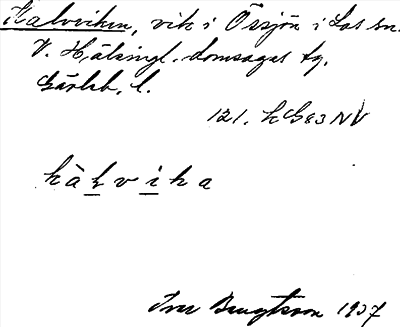 Kalvviken, vik i Össjön i Los sn.
V. Hälsingl. domsagas tg.
Gävleb. l.
121. h G83 NV
kàḻvi̱ka
Ivar Bengtsson 1937